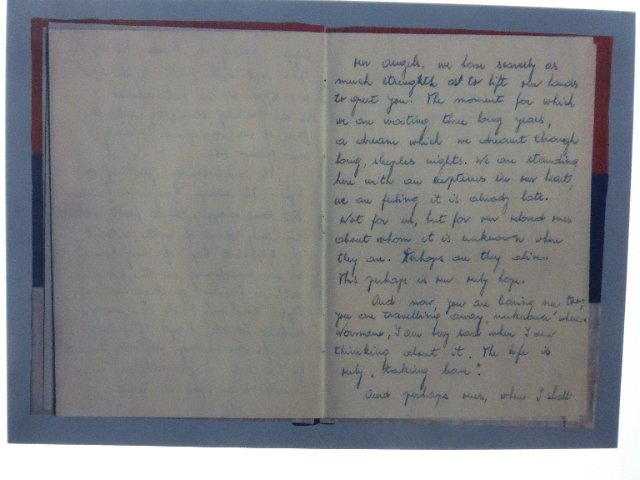 our angels, we have scarcely as
much strenghth as to lift our hands
to greet you. The moment for which
we are waiting three long years,
a dream which we dreamt through
long, sleeples nights. We are standing
here with an emptines in our heart,
we are feeling it is already late.
Not for us, but for our beloved ones
about whom it is unknown where
they are. Perhaps are they alive.
This perhaps is our only hope.
And now, you are leaving me too,
you are travelling away, unknown where.
I am very sad when I am
thinking about it. The life is
only "taking leave".
And perhaps once, when I shall